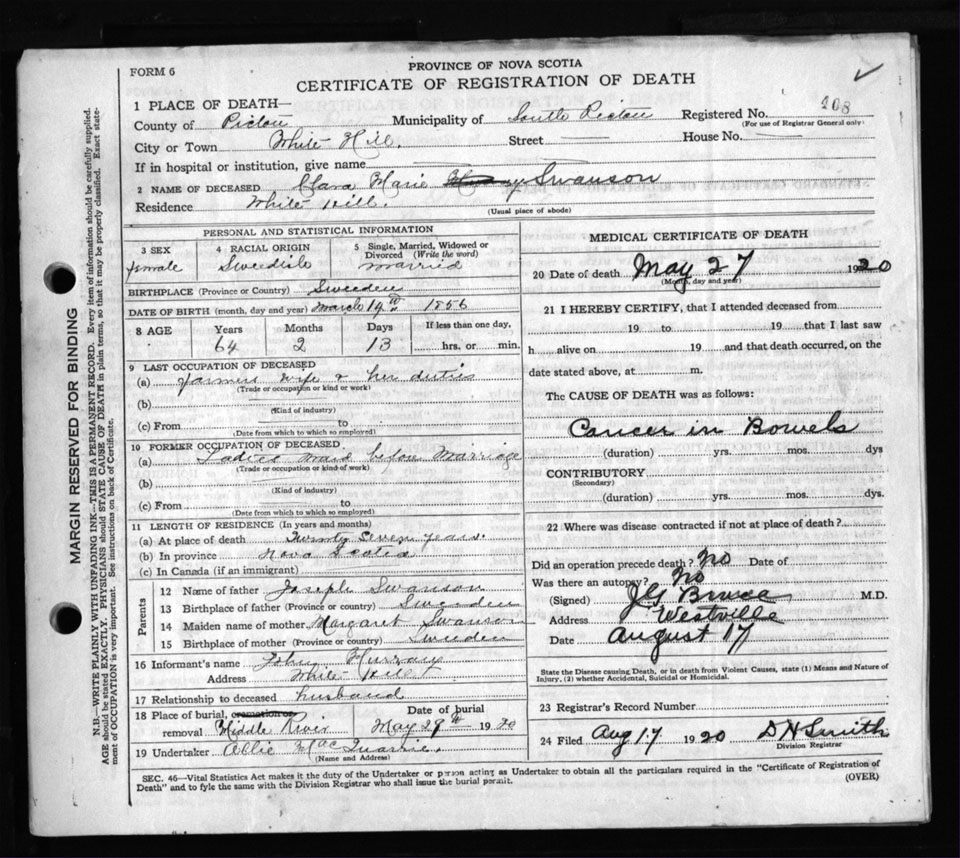 FORM 6
PROVINCE OF NOVA SCOTIA
CERTIFICATE OF REGISTRATION OF DEATH
1 PLACE OF DEATH—
County of Pictou Municipality of South Pictou Registered No. 108
(For use of Registrar General only)
City or Town White Hill. Street House No.
If in hospital or institution, give name
2 NAME OF DECEASED Clara Marie Swanson
Residence White Hill.
(Usual place of abode)
PERSONAL AND STATISTICAL INFORMATION
3 SEX female
4 RACIAL ORIGIN Sweedish
5 Single, Married, Widowed or Divorced (Write the word) married
BIRTHPLACE (Province or Country) Sweeden
DATE OF BIRTH (month, day and year) March 14th 1856
8 AGE Years Months Days If less than one day,
64 2 13 hrs. or min.
9 LAST OCCUPATION OF DECEASED
(a) farmers wife & her duties
(Trade or occupation or kind or work)
(b)
(Kind of industry)
(c) From to
(Date from which to which so employed)
10 FORMER OCCUPATION OF DECEASED
(a) Ladies maid before Marriage
(Trade or occupation or kind of work)
(b)
(Kind of industry)
(c) From to
(Date from which to which so employed)
11 LENGTH OF RESIDENCE (In years and months)
(a) At place of death Twenty Seven years.
(b) In province Nova Scotia
(c) In Canada (if an immigrant)
Parents
12 Name of father Joseph Swanson
13 Birthplace of father (Province or country) Sweeden
14 Maiden name of mother Margaret Swanson
15 Birthplace of mother (Province or country) Sweeden
16 Informant's name John Murray
Address White Hill
17 Relationship to deceased husband
18 Place of burial, cremation or removal Middle River
Date of burial May 29th 1920
19 Undertaker Allie MacQuarrie.
(Name and Address)
MEDICAL CERTIFICATE OF DEATH
20 Date of death May 27 1920
(Month, day and year)
21 I HEREBY CERTIFY, that I attended deceased from
19 to 19 that I last saw
h alive on 19 and that death occurred, on the
date stated above, at m.
The CAUSE OF DEATH was as follows:
Cancer in Bowels
(duration) yrs. mos. dys
CONTRIBUTORY
(Secondary)
(duration) yrs. mos. dys.
22 Where was disease contracted if not at place of death?
Did an operation precede death? No Date of
Was there an autopsy? No
(Signed) M.D.
Address Westville
Date August 17
State the Disease causing Death, or in death from Violent Causes, state (1) Means and Nature of
Injury, (2) whether Accidental, Suicidal or Homicidal.
23 Registrar's Record Number
24 Filed Aug 17 1920 D H Smith
Division Registrar
SEC. 46—Vital Statistics Act makes it the duty of the Undertaker or person acting as Undertaker to obtain all the particulars required in the "Certificate of Registration of
Death" and to fyle the same with the Division Registrar who shall issue the burial permit.
(OVER)
MARGIN RESERVED FOR BINDING
N.B.—WRITE PLAINLY WITH UNFADING INK—THIS IS A PERMANENT RECORD. Every item of information should be carefully supplied.
AGE should be stated EXACTLY. PHYSICIANS should STATE CAUSE OF DEATH in plain terms, so that it may be properly classified. Exact state-
ment of OCCUPATION is very important. See instructions on back of Certificate.